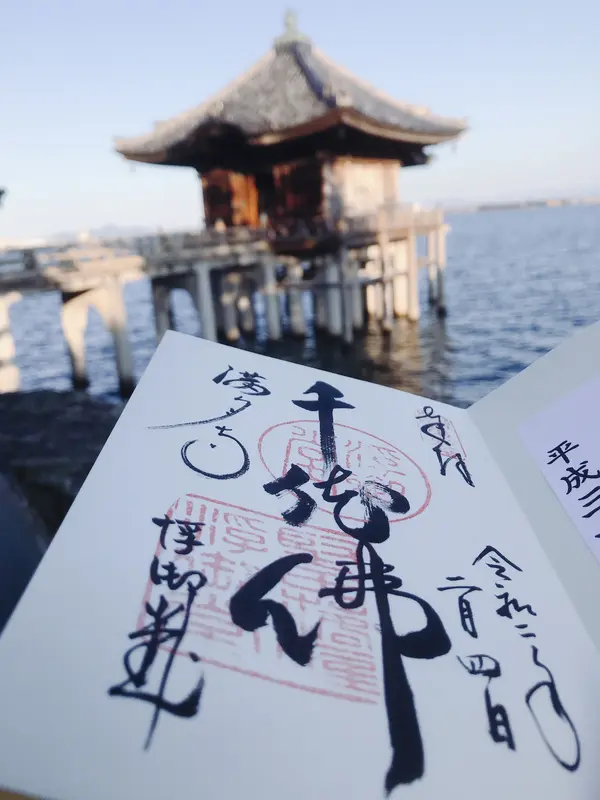 平成三
奉拝
令和二年
二月四日
千体佛
満月寺
浮御堂